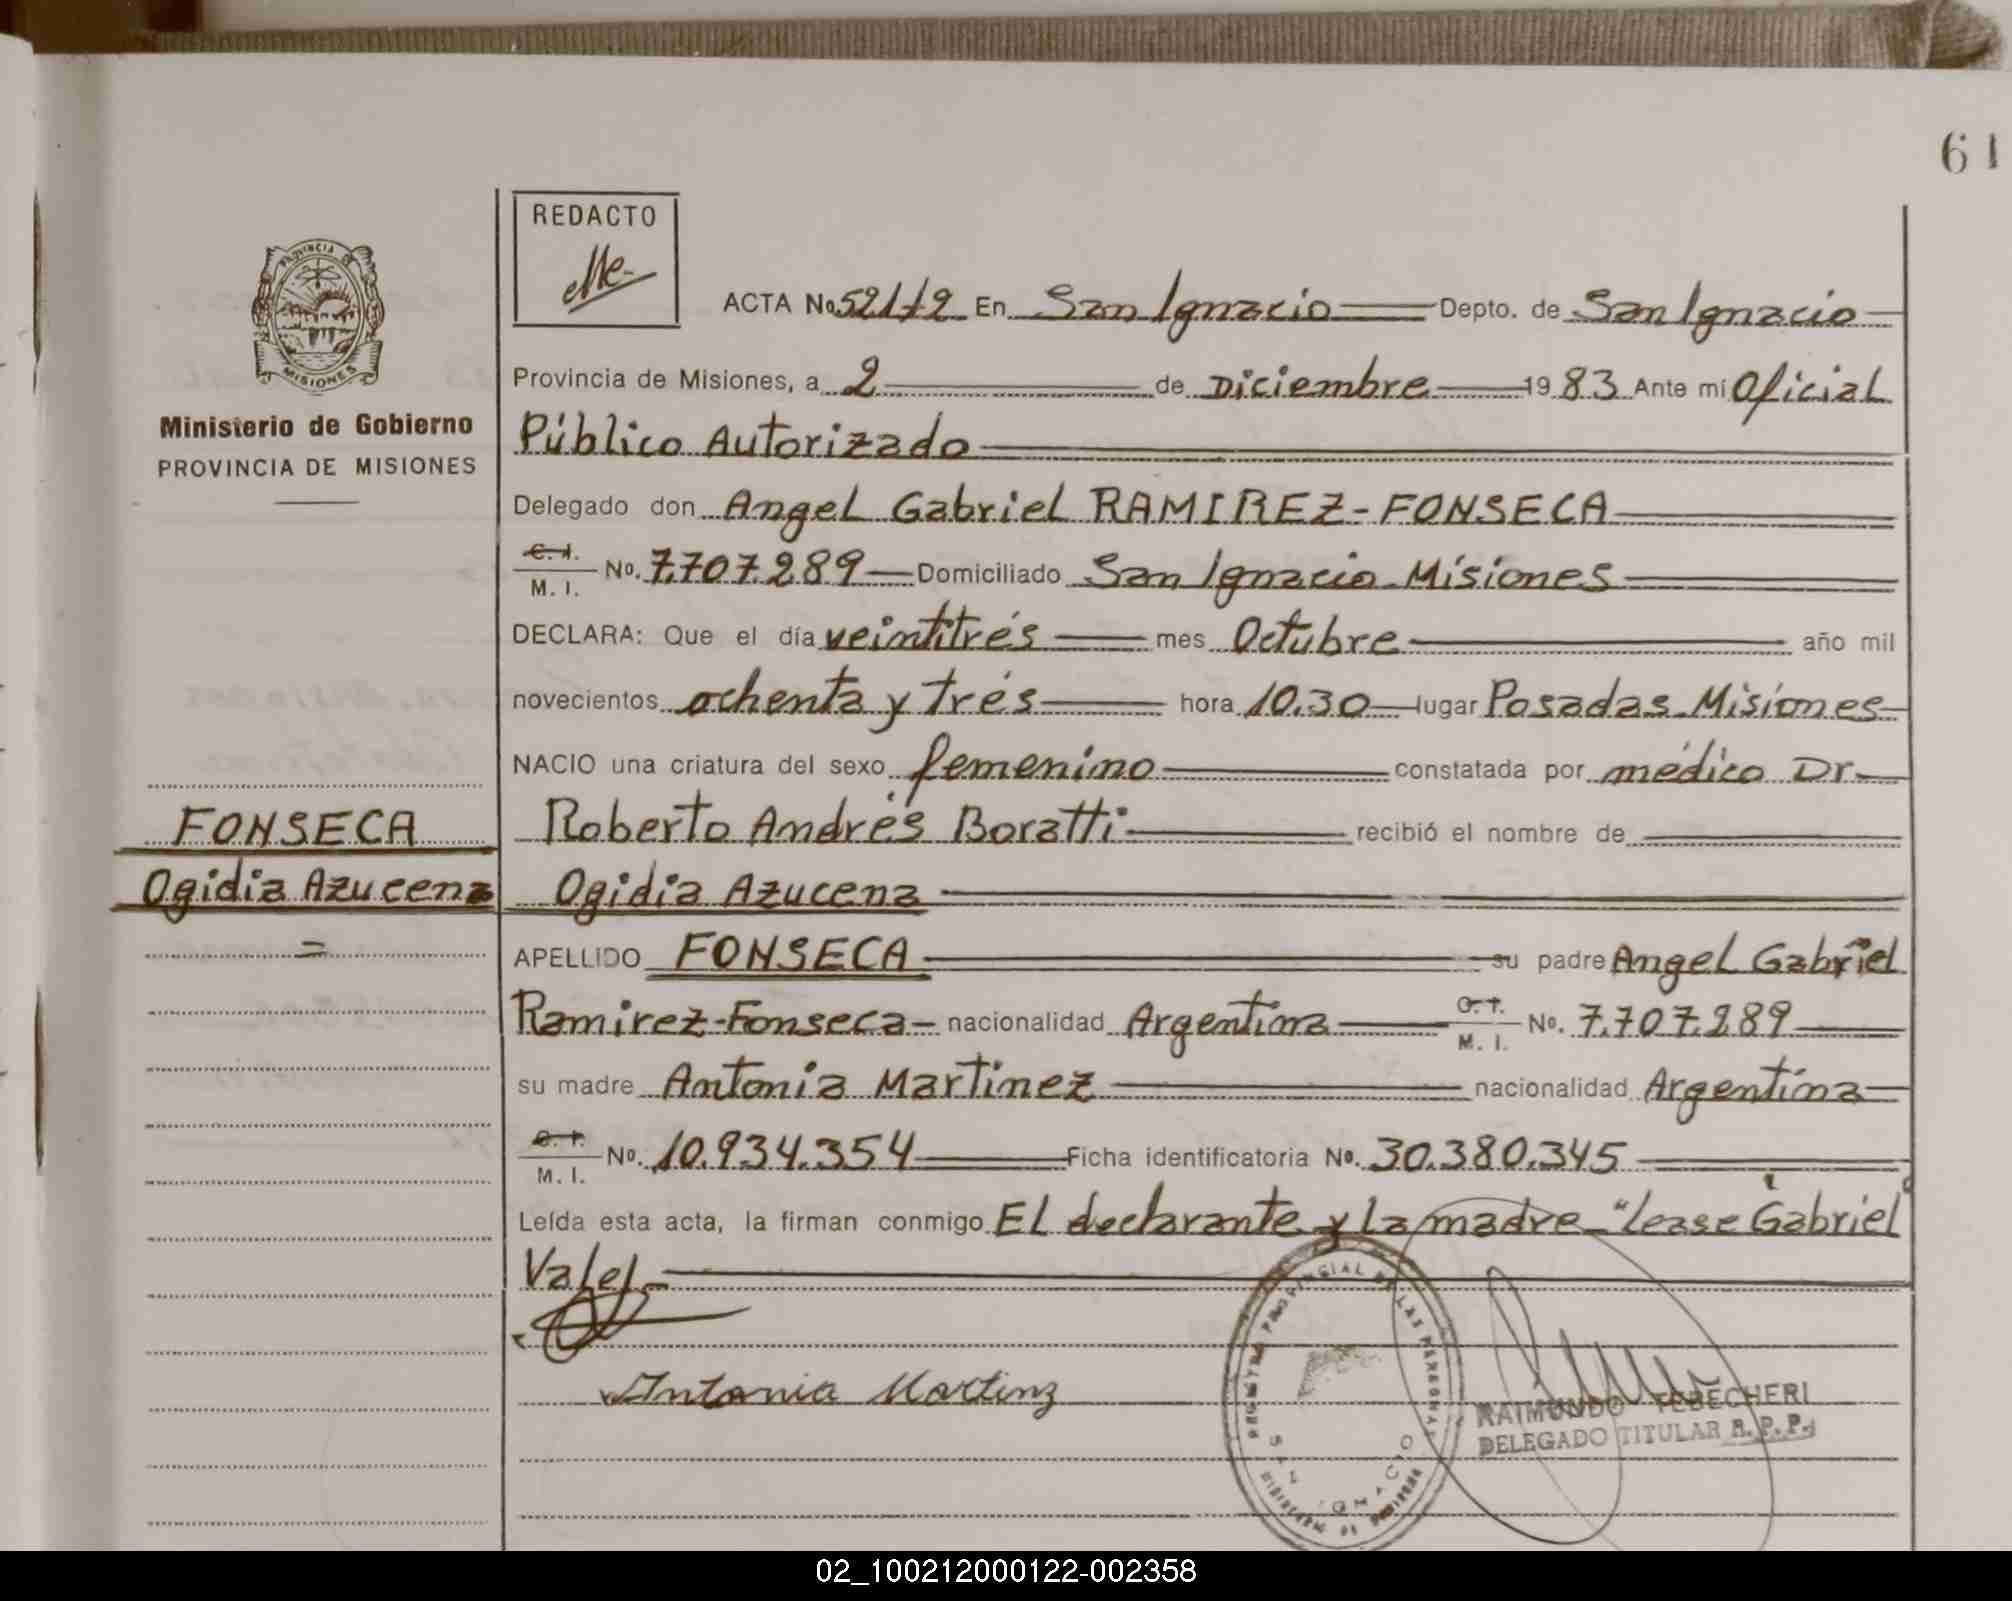 61
REDACTO
PROVINCIA DE
MISIONES
Ministerio de Gobierno
PROVINCIA DE MISIONES
ACTA No. 521 t2 En San Ignacio Depto. de San Ignacio
Provincia de Misiones, a 2 de Diciembre 19 83 Ante mí Oficial
Público Autorizado
Delegado don Angel Gabriel RAMIREZ-FONSECA
C. I. M. I. No. 7.707.289 Domiciliado San Ignacio Misiones
DECLARA: Que el día veintitrés mes Octubre año mil
novecientos ochenta y trés hora 10.30 lugar Posadas Misiones
NACIO una criatura del sexo femenino constatada por médico Dr.
FONSECA
Roberto Andrés Boratti recibió el nombre de
Ogidia Azucena
Ogidia Azucena
APELLIDO FONSECA su padre Angel Gabriel
Ramirez-Fonseca nacionalidad Argentina M. I. No. 7.707.289
su madre Antonia Martinez nacionalidad Argentina
M. I. No. 10.934.354 Ficha identificatoria No. 30.380.345
Leída esta acta, la firman conmigo El declarante y la madre "lease Gabriel
Vale
Antonia Martinz
REGISTRO PROVINCIAL DE LAS PERSONAS
SAN IGNACIO
RAIMUNDO TEBECHERI
DELEGADO TITULAR R. P. P.
02_100212000122-002358